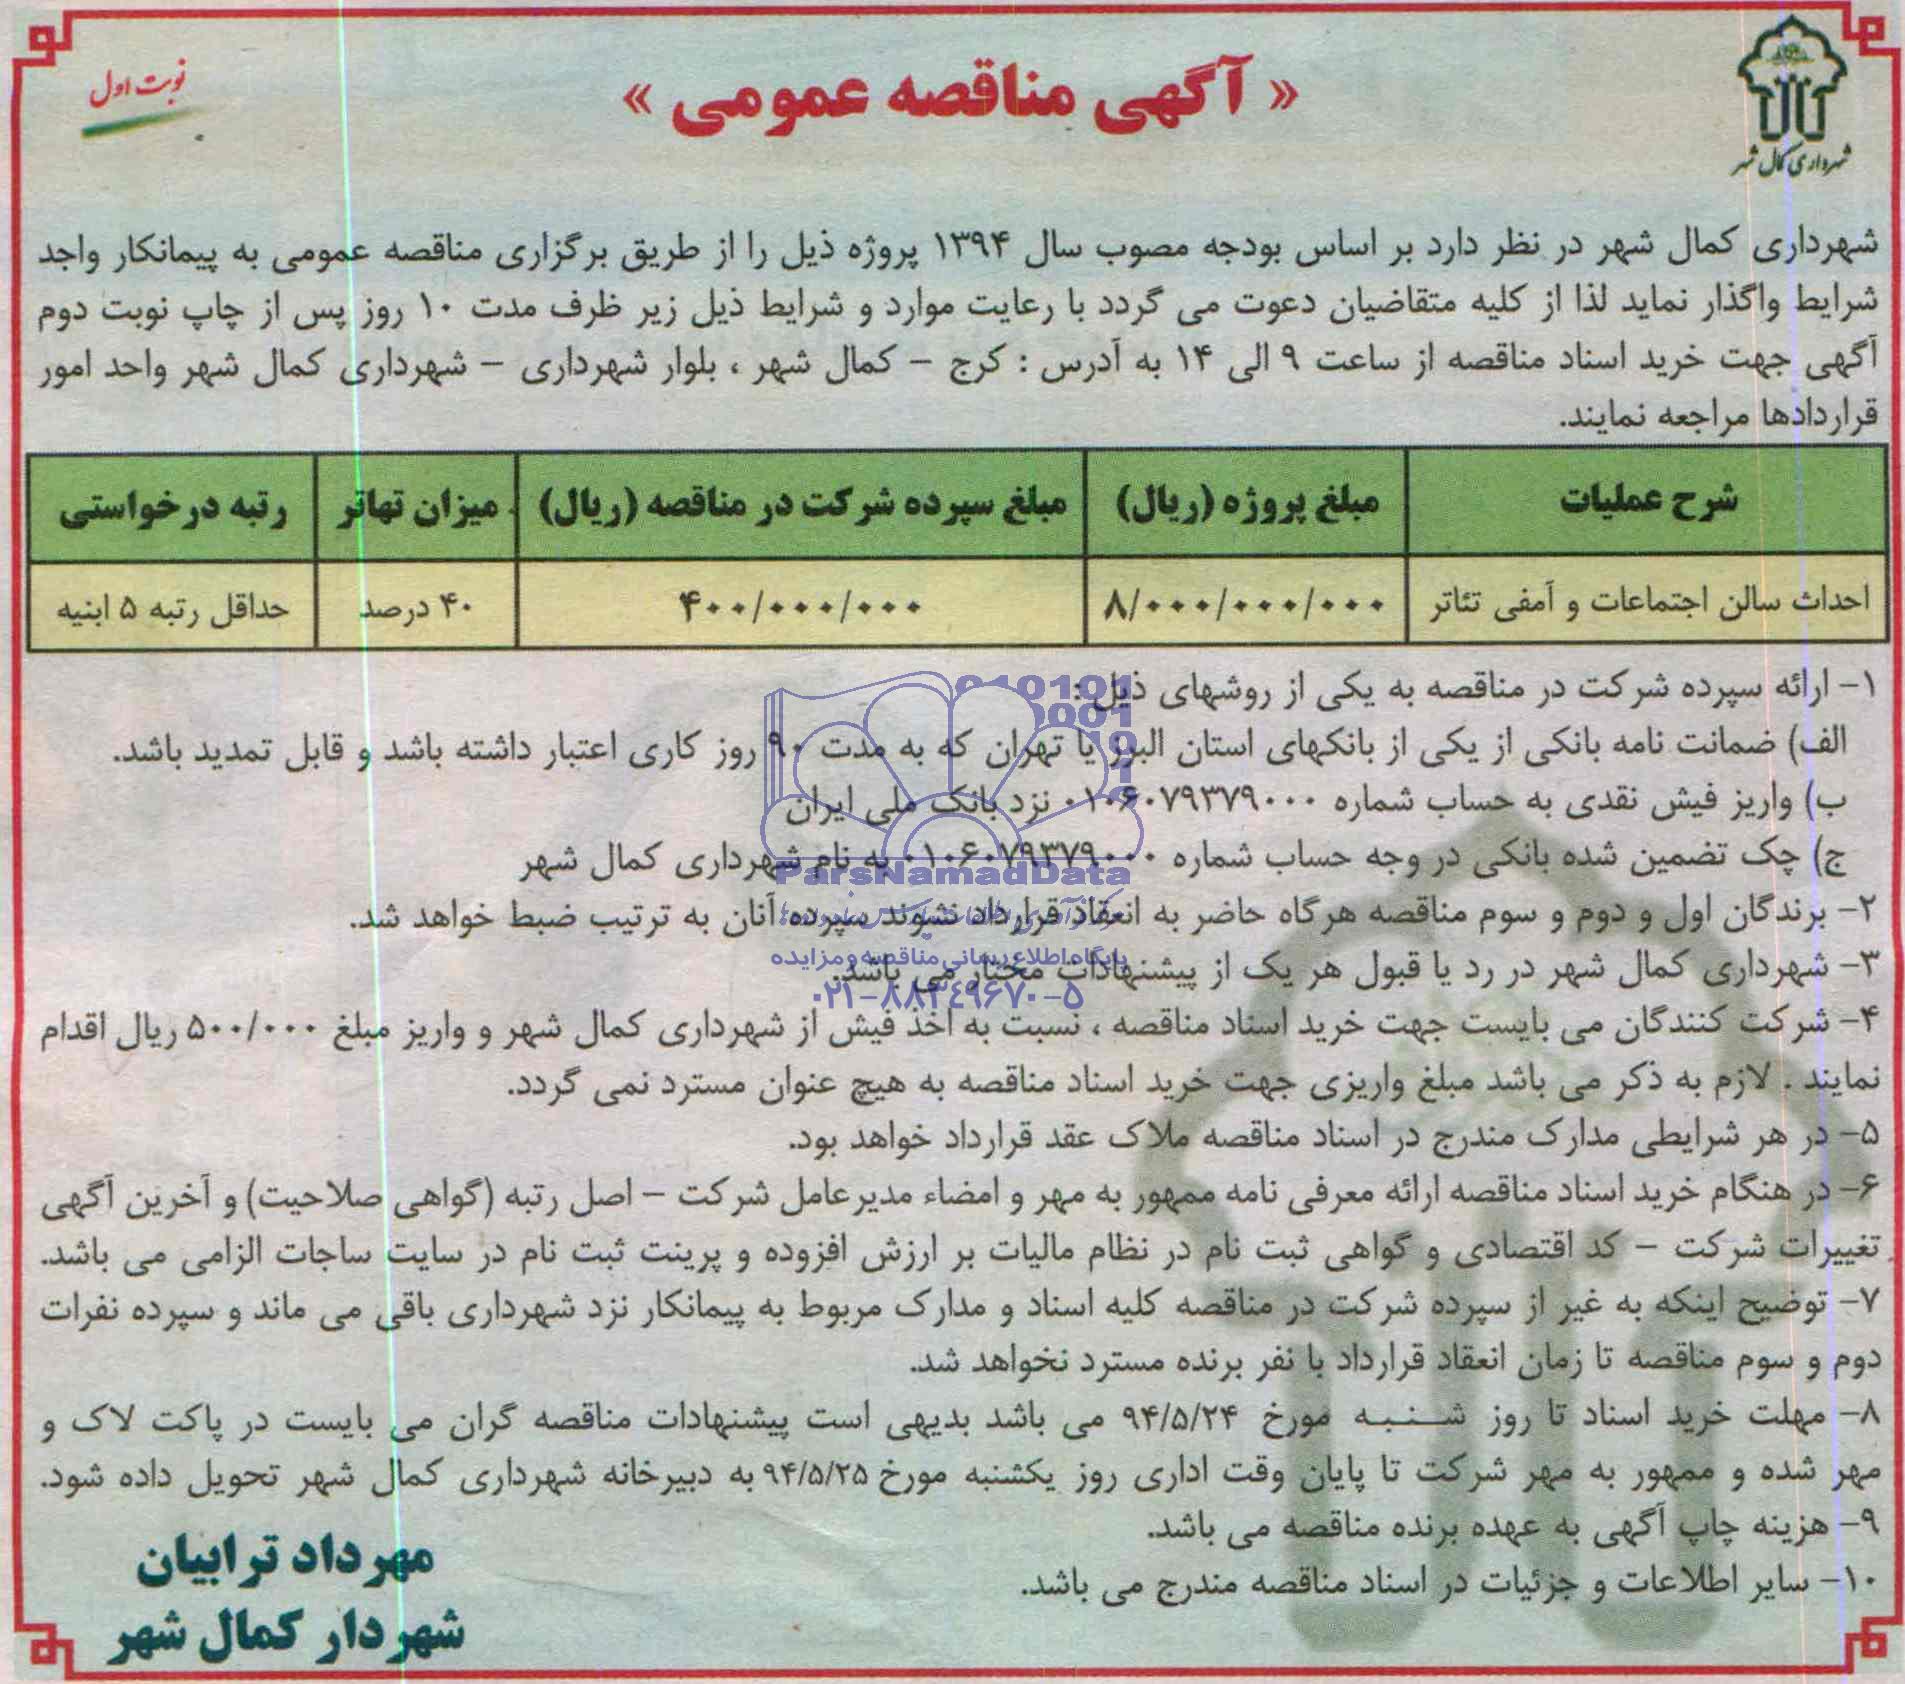 شهرداری کمال شهر
« آگهی مناقصه عمومی »
نوبت اول
شهرداری کمال شهر در نظر دارد بر اساس بودجه مصوب سال ۱۳۹۴ پروژه ذیل را از طریق برگزاری مناقصه عمومی به پیمانکار واجد
شرایط واگذار نماید لذا از کلیه متقاضیان دعوت می گردد با رعایت موارد و شرایط ذیل زیر ظرف مدت ۱۰ روز پس از چاپ نوبت دوم
آگهی جهت خرید اسناد مناقصه از ساعت ۹ الی ۱۴ به آدرس : کرج – کمال شهر ، بلوار شهرداری – شهرداری کمال شهر واحد امور
قراردادها مراجعه نمایند.
شرح عملیات مبلغ پروژه (ریال) مبلغ سپرده شرکت در مناقصه (ریال) میزان تهاتر رتبه درخواستی
احداث سالن اجتماعات و آمفی تئاتر ۸/۰۰۰/۰۰۰/۰۰۰ ۴۰۰/۰۰۰/۰۰۰ ۴۰ درصد حداقل رتبه ۵ ابنیه
۱- ارائه سپرده شرکت در مناقصه به یکی از روشهای ذیل :
الف) ضمانت نامه بانکی از یکی از بانکهای استان البرز یا تهران که به مدت ۹۰ روز کاری اعتبار داشته باشد و قابل تمدید باشد.
ب) واریز فیش نقدی به حساب شماره ۰۱۰۶۰۷۹۳۷۹۰۰۰ نزد بانک ملی ایران
ج) چک تضمین شده بانکی در وجه حساب شماره ۰۱۰۶۰۷۹۳۷۹۰۰۰ به نام شهرداری کمال شهر
۲- برندگان اول و دوم و سوم مناقصه هرگاه حاضر به انعقاد قرارداد نشوند سپرده آنان به ترتیب ضبط خواهد شد.
۳- شهرداری کمال شهر در رد یا قبول هر یک از پیشنهادات مختار می باشد.
۴- شرکت کنندگان می بایست جهت خرید اسناد مناقصه ، نسبت به اخذ فیش از شهرداری کمال شهر و واریز مبلغ ۵۰۰/۰۰۰ ریال اقدام
نمایند . لازم به ذکر می باشد مبلغ واریزی جهت خرید اسناد مناقصه به هیچ عنوان مسترد نمی گردد.
۵- در هر شرایطی مدارک مندرج در اسناد مناقصه ملاک عقد قرارداد خواهد بود.
۶- در هنگام خرید اسناد مناقصه ارائه معرفی نامه ممهور به مهر و امضاء مدیرعامل شرکت – اصل رتبه (گواهی صلاحیت) و آخرین آگهی
تغییرات شرکت – کد اقتصادی و گواهی ثبت نام در نظام مالیات بر ارزش افزوده و پرینت ثبت نام در سایت ساجات الزامی می باشد.
۷- توضیح اینکه به غیر از سپرده شرکت در مناقصه کلیه اسناد و مدارک مربوط به پیمانکار نزد شهرداری باقی می ماند و سپرده نفرات
دوم و سوم مناقصه تا زمان انعقاد قرارداد با نفر برنده مسترد نخواهد شد.
۸- مهلت خرید اسناد تا روز شنبه مورخ ۹۴/۵/۲۴ می باشد بدیهی است پیشنهادات مناقصه گران می بایست در پاکت لاک و
مهر شده و ممهور به مهر شرکت تا پایان وقت اداری روز یکشنبه مورخ ۹۴/۵/۲۵ به دبیرخانه شهرداری کمال شهر تحویل داده شود.
۹- هزینه چاپ آگهی به عهده برنده مناقصه می باشد.
۱۰- سایر اطلاعات و جزئیات در اسناد مناقصه مندرج می باشد.
مهرداد ترابیان
شهردار کمال شهر
ParsNamadData
پایگاه اطلاع رسانی مناقصه و مزایده
۰۲۱-۸۸۳۴۹۶۷۰-۵